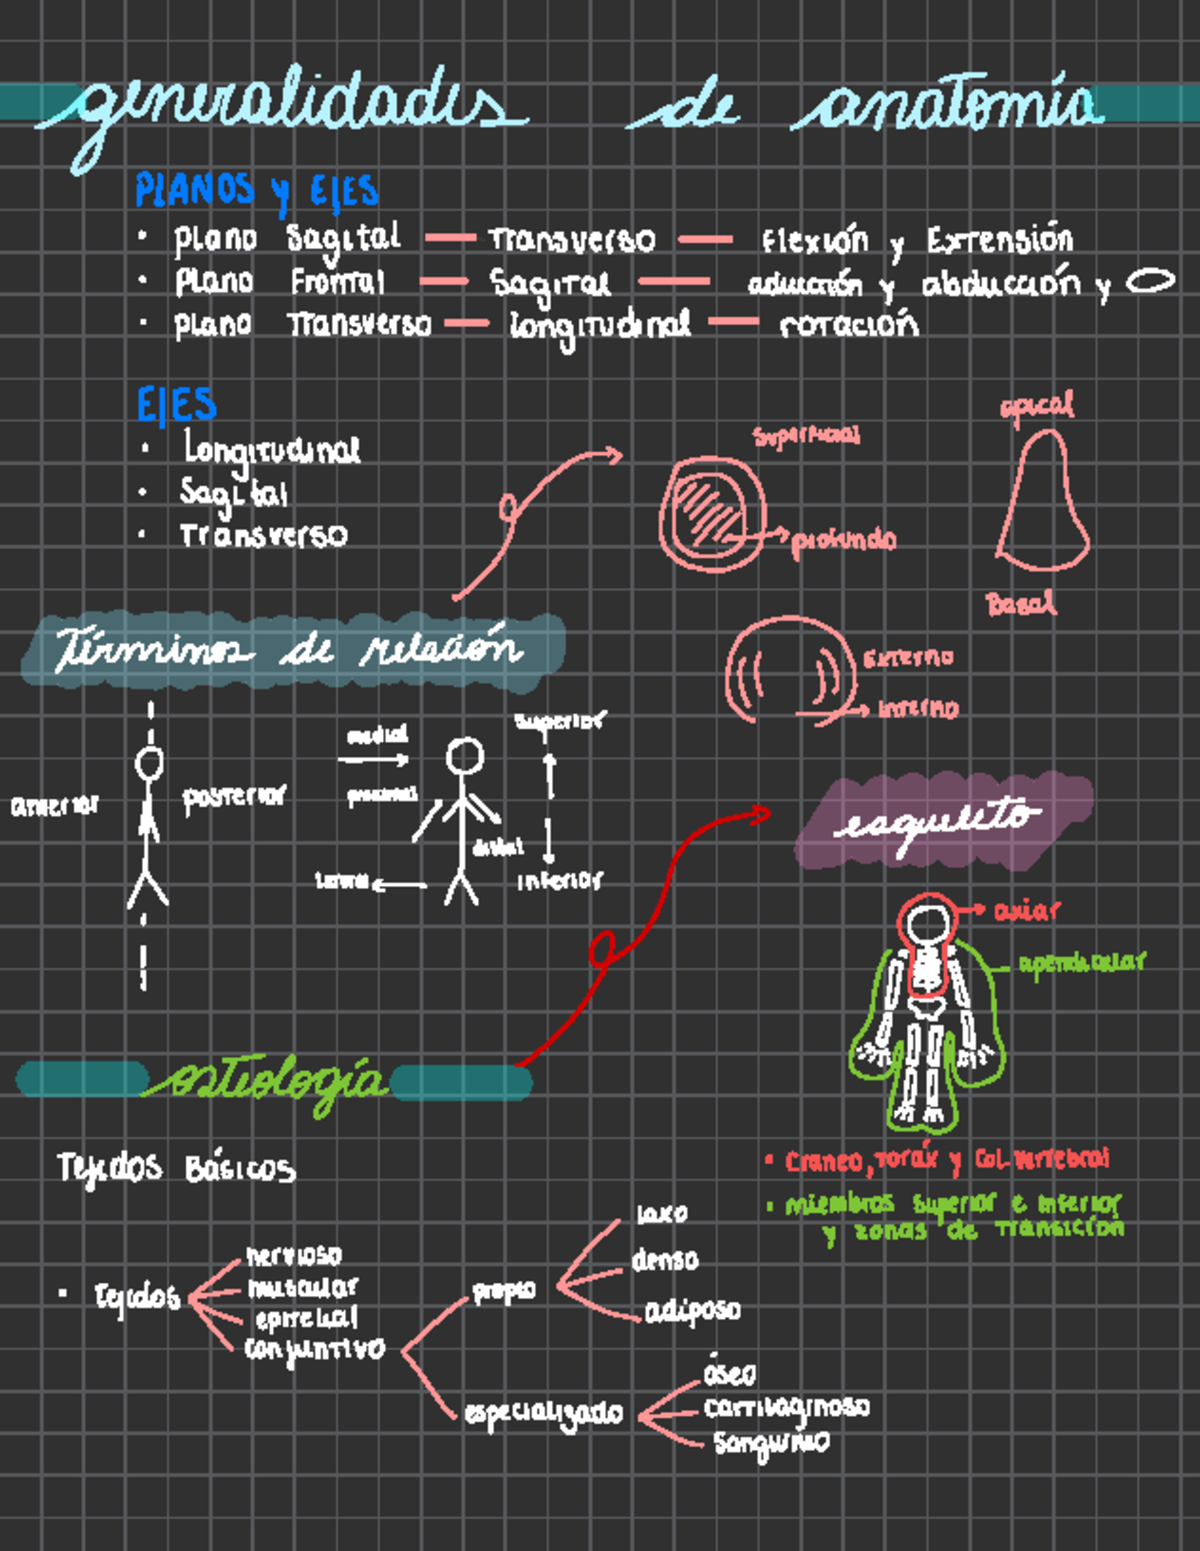 generalidades de anatomía
PLANOS y EJES
• Plano Sagital — Transverso — Flexión y Extensión
• Plano Frontal — Sagital — aducción y abducción y
• Plano Transverso — Longitudinal — rotación
EJES
• Longitudinal
• Sagital
• Transverso
apical
superficial
profundo
Basal
Términos de relación
Externo
interno
superior
medial
anterior
posterior
proximal
distal
inferior
esqueleto
axiar
apendicular
osteología
Tejidos Básicos
• Craneo, Toráx y Col. vertebral
• miembros superior e inferior
y zonas de transición
• Tejidos
nervioso
muscular
epitelial
conjuntivo
propio
laxo
denso
adiposo
especializado
óseo
cartilaginoso
sanguíneo